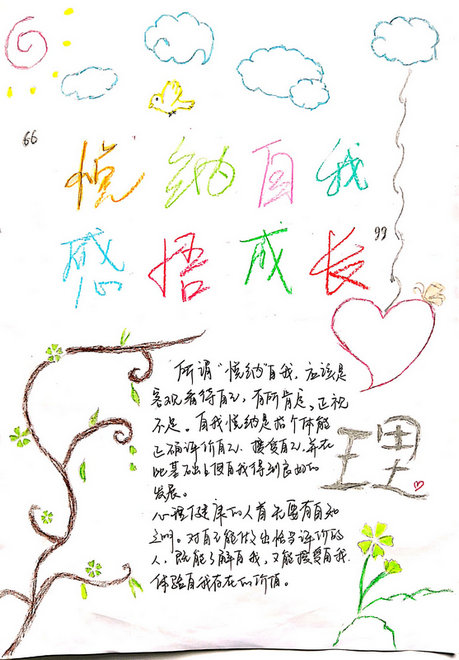 “悦纳自我
感悟成长”
所谓“悦纳”自我，应该是
客观看待自己，有所肯定、正视
不足。自我悦纳是指个体能
正确评价自己，接受自己，并在
此基础上但自我得到良好的
发展。
心理健康的人首先要有自知
之明。对自己能作出恰当评价的
人，既能了解自我，又能接受自我，
体验自我存在的价值。
理